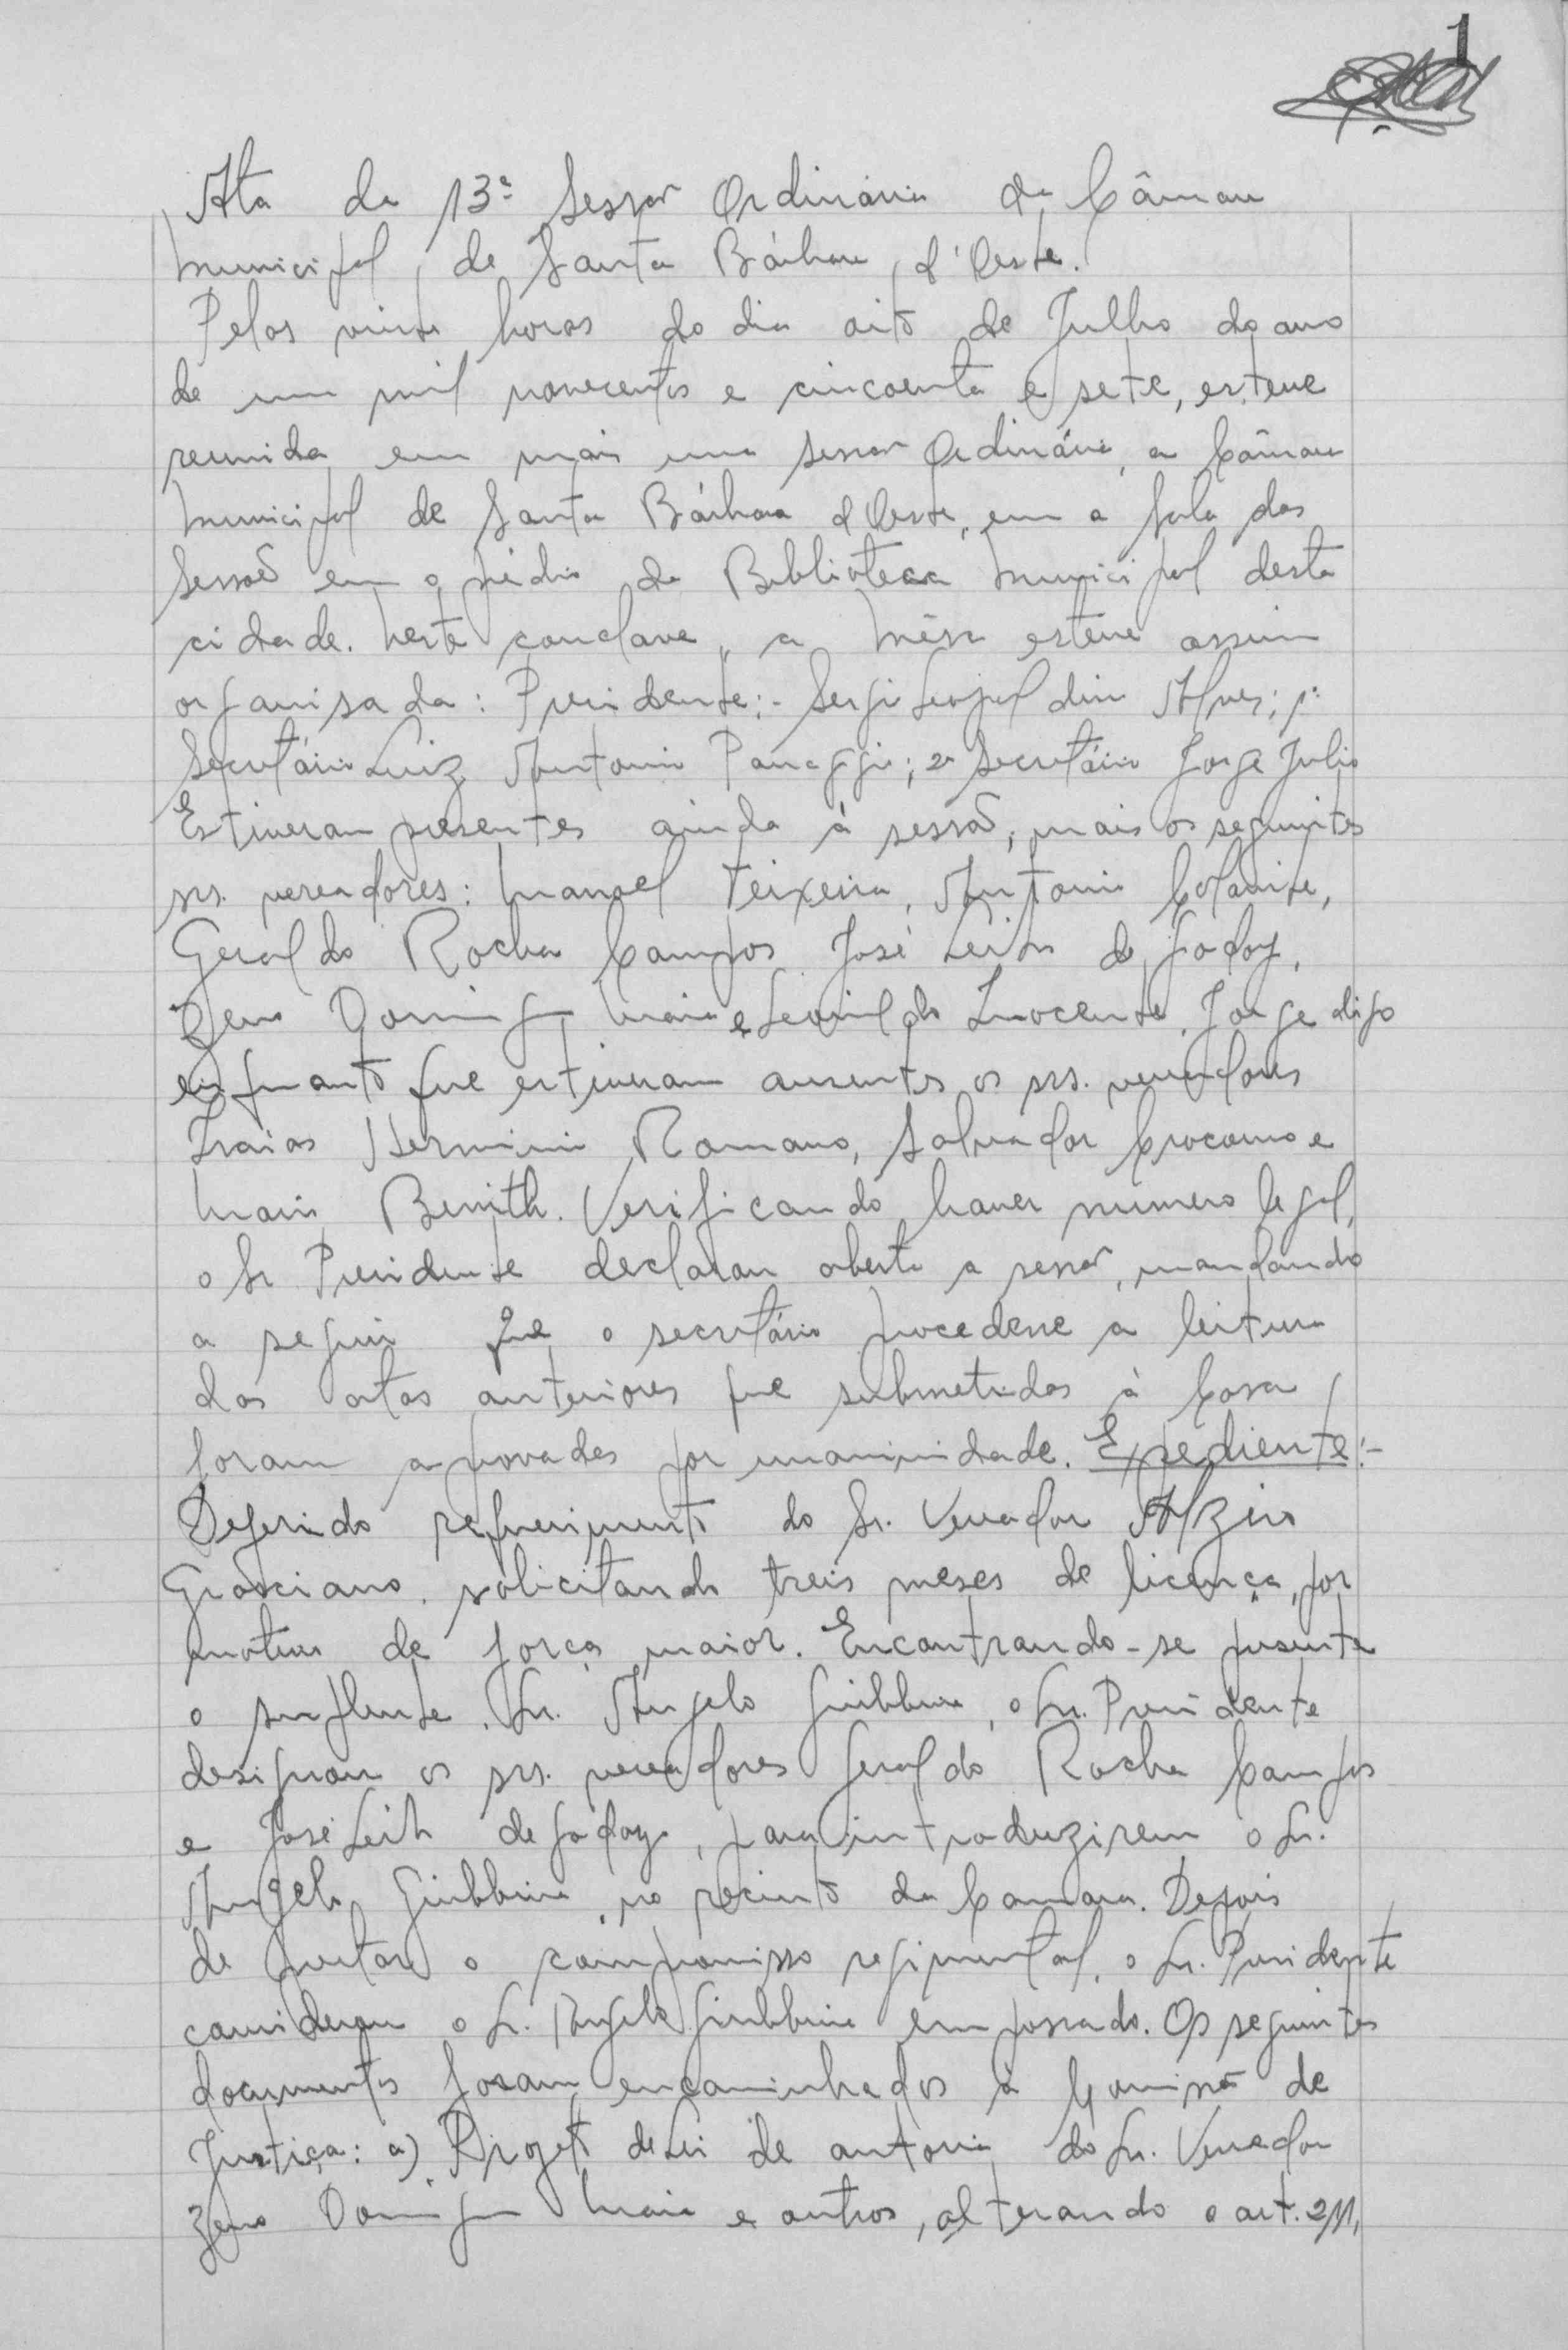 1
Ata da 13ª Sessão Ordinária da Câmara
Municipal de Santa Bárbara d'Oeste.
Pelas vinte horas do dia oito de Julho do ano
de um mil novecentos e cincoenta e sete, esteve
reunida em mais uma sessão Ordinária, a Câmara
Municipal de Santa Bárbara d'Oeste, em a sala das
Sessoẽs em o prédio da Biblioteca Municipal desta
cidade. Neste conclave, a Mêsa esteve assim
organisada: Presidente:- Sergio Leopoldino Alves; 1º
Secretário Luiz Antonio Panaggio; 2º Secretário Jorge Julio
Estiveram presentes ainda à sessão, mais os seguintes
srs. vereadores: Manoel Teixeira, Antonio
Geraldo Rocha Campos José Leite de Godoy,
Zeno Domingos Maia e Leovildo Inocente, Jorge digo
enquanto que estiveram ausentes os srs. vereadores
Izaias Herminio Romano, Salvador Crocomo e
Mario Benith. Verificando haver numero legal,
o Sr Presidente declarou aberta a sessão, mandando
a seguir que o secretário procedesse a leitura
das atas anteriores que submetidas à Casa
foram aprovadas por unanimidade. Expediente:-
Deferido requerimento do Sr. Vereador Alziro
Grasciano, solicitando treis meses de licença, por
motivo de força maior. Encontrando-se presente
o suplente, Sr. Angelo Giubbina, o Sr. Presidente
designou os srs. vereadores Geraldo Rocha Campos
e José Leite de Godoy, para introduzirem o Sr.
Angelo Giubbina, no recinto da Camara. Depois
de prestar o compromisso regimental, o Sr. Presidente
considerou o Sr. Angelo Giubbina empossado. Os seguintes
documentos foram encaminhados à Comissão de
Justiça: a) Projeto de Lei de autoria do Sr. Vereador
Zeno Domingos Maia e outros, alterando o art. 211,